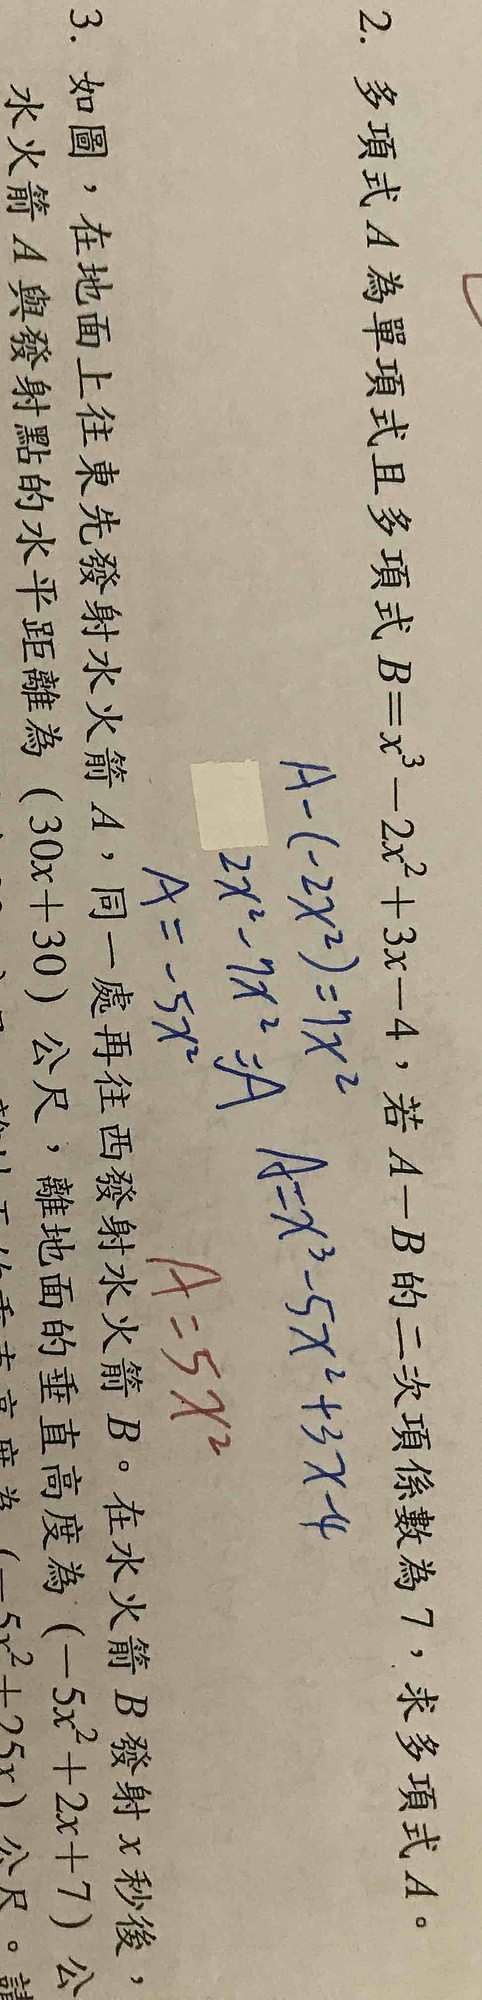 2. 多項式 A 為單項式且多項式 B=x³-2x²+3x-4，若 A-B 的二次項係數為 7，求多項式 A。
A-(-2x²)=7x²
2x²-7x²=A A=x³-5x²+3x-4
A=-5x² A=5x²
3. 如圖，在地面上往東先發射水火箭 A，同一處再往西發射水火箭 B。在水火箭 B 發射 x 秒後，
水火箭 A 與發射點的水平距離為 (30x+30) 公尺，離地面的垂直高度為 (-5x²+2x+7) 公
垂直高度為 (-5x²+25x) 公尺。請